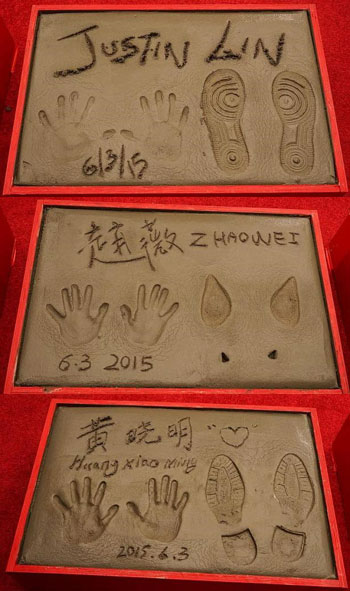 JUSTIN LIN
6/3/15
趙薇 ZHAOWEI
6.3 2015
黃晓明
Huang xiao ming
2015.6.3